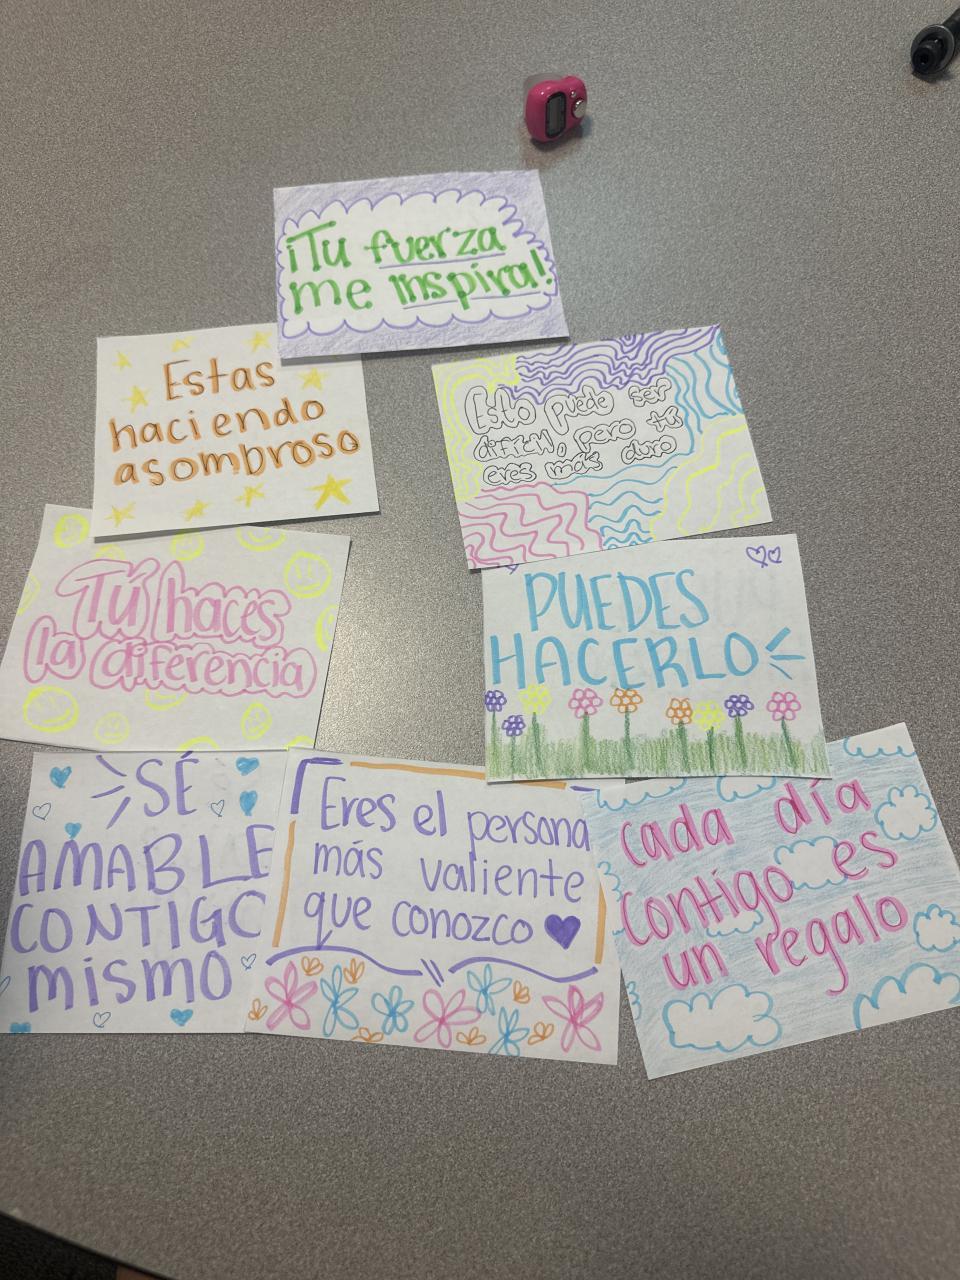 ¡Tu fuerza
me inspira!
Estas
haciendo
asombroso
Esto puede ser
difícil, pero tú
eres más duro
Tú haces
la diferencia
PUEDES
HACERLO
SÉ
AMABLE
CONTIGO
mismo
Eres el persona
más valiente
que conozco
cada día
contigo es
un regalo